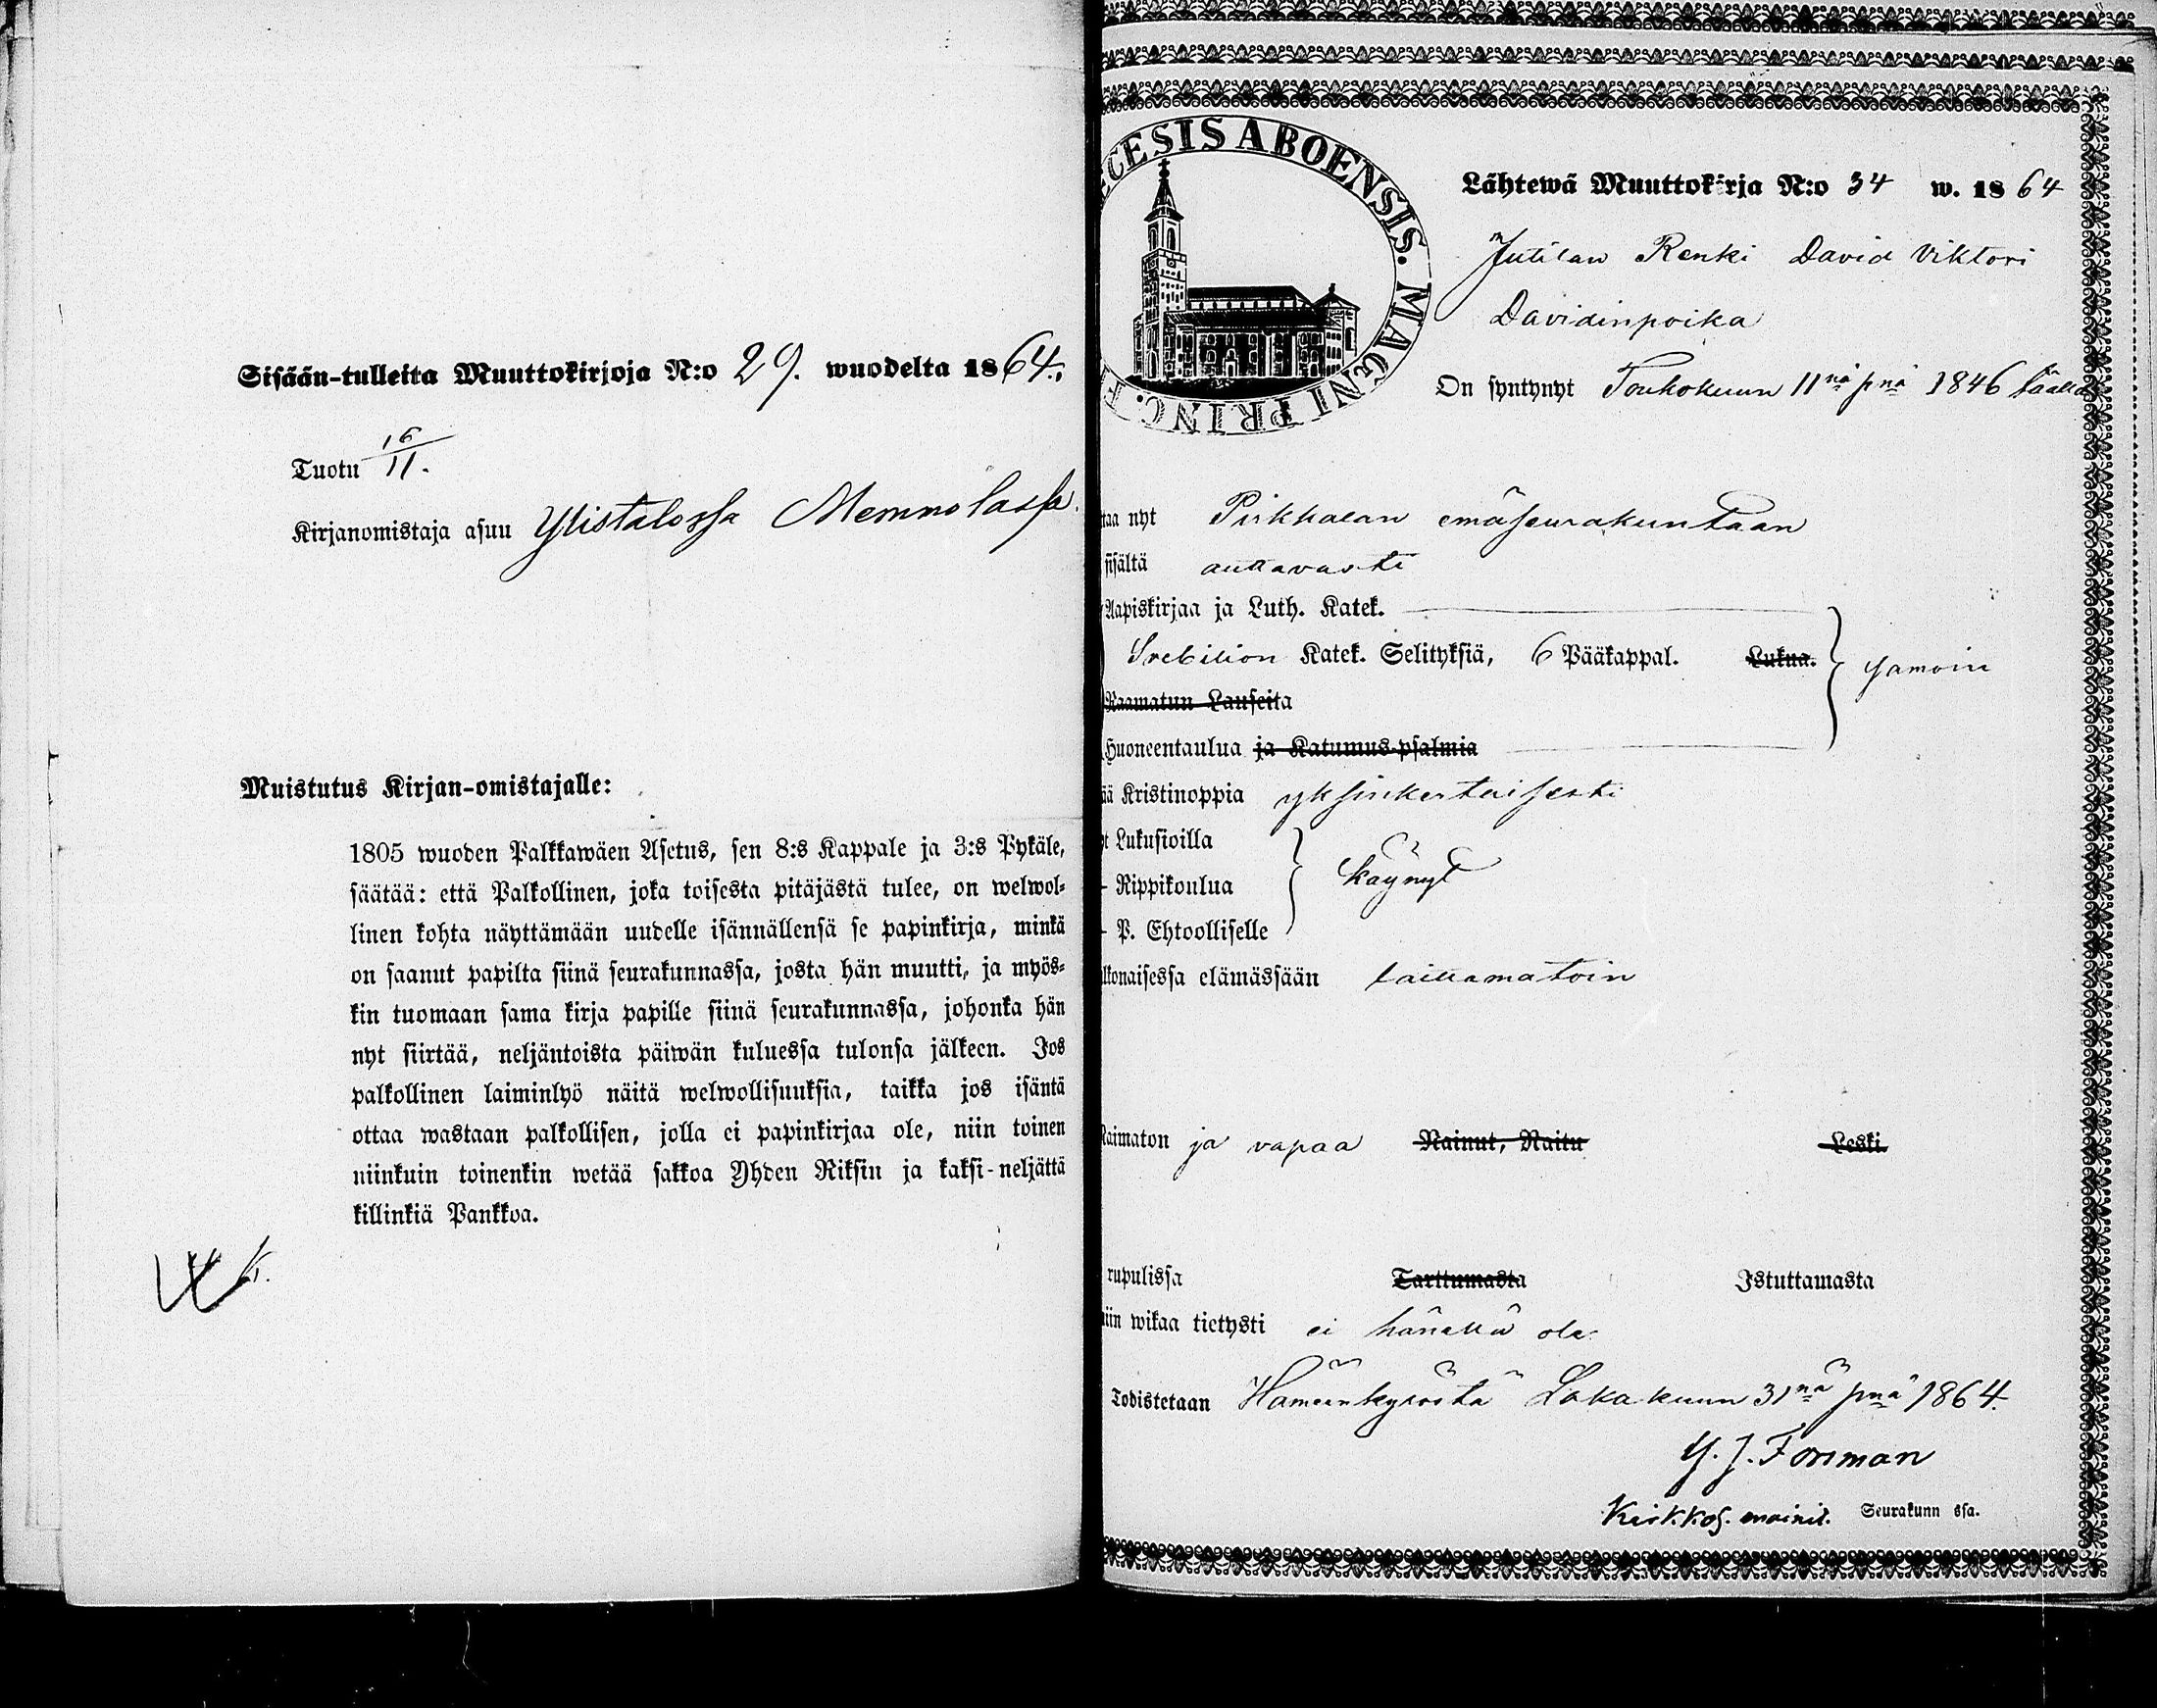 Sisään-tulleita Muuttokirjoja N:o 29. wuodelta 1864.
Tuotu 16/11.
Kirjanomistaja asuu Ylistalossa Memmolassa.
Muistutus Kirjan-omistajalle:
1805 wuoden Palkkawäen Asetus, sen 8:s Kappale ja 3:s Pykäle,
säätää: että Palkollinen, joka toisesta pitäjästä tulee, on welwol-
linen kohta näyttämään uudelle isännällensä se papinkirja, minkä
on saanut papilta siinä seurakunnassa, josta hän muutti, ja myös-
kin tuomaan sama kirja papille siinä seurakunnassa, johonka hän
nyt siirtää, neljäntoista päiwän kuluessa tulonsa jälkeen. Jos
palkollinen laiminlyö näitä welwollisuuksia, taikka jos isäntä
ottaa wastaan palkollisen, jolla ei papinkirjaa ole, niin toinen
niinkuin toinenkin wetää sakkoa Yhden Riksin ja kaksi-neljättä
killinkiä Pankkoa.
ECESIS ABOENSIS. MAGNI PRINC. F
Lähtewä Muuttokirja N:o 34 w. 1864
Jutilan Renki David Viktori
Davidinpoika
On syntynyt Toukokuun 11nä pnä 1846 täällä
taa nyt Pirkkalan emäseurakuntaan
sisältä auttavasti
Aapiskirjaa ja Luth. Katek.
Svebilion Katek. Selityksiä, 6 Pääkappal. Lukua. samoin
Raamatun Lauseita
Huoneentaulua ja Katumus-psalmia
ää Kristinoppia yksinkertaisesti
t Lukusioilla
- Rippikoulua käynyt
- P. Ehtoolliselle
lkonaisessa elämässään laittamatoin
Naimaton ja vapaa Nainut, Naitu Leski.
rupulissa Tarttumasta Istuttamasta
iin wikaa tietysti ei hänellä ole.
Todistetaan Hämeenkyröstä Lokakuun 31nä pnä 1864.
G. J. Forsman
Kirkkoh. mainit. Seurakunn ssa.